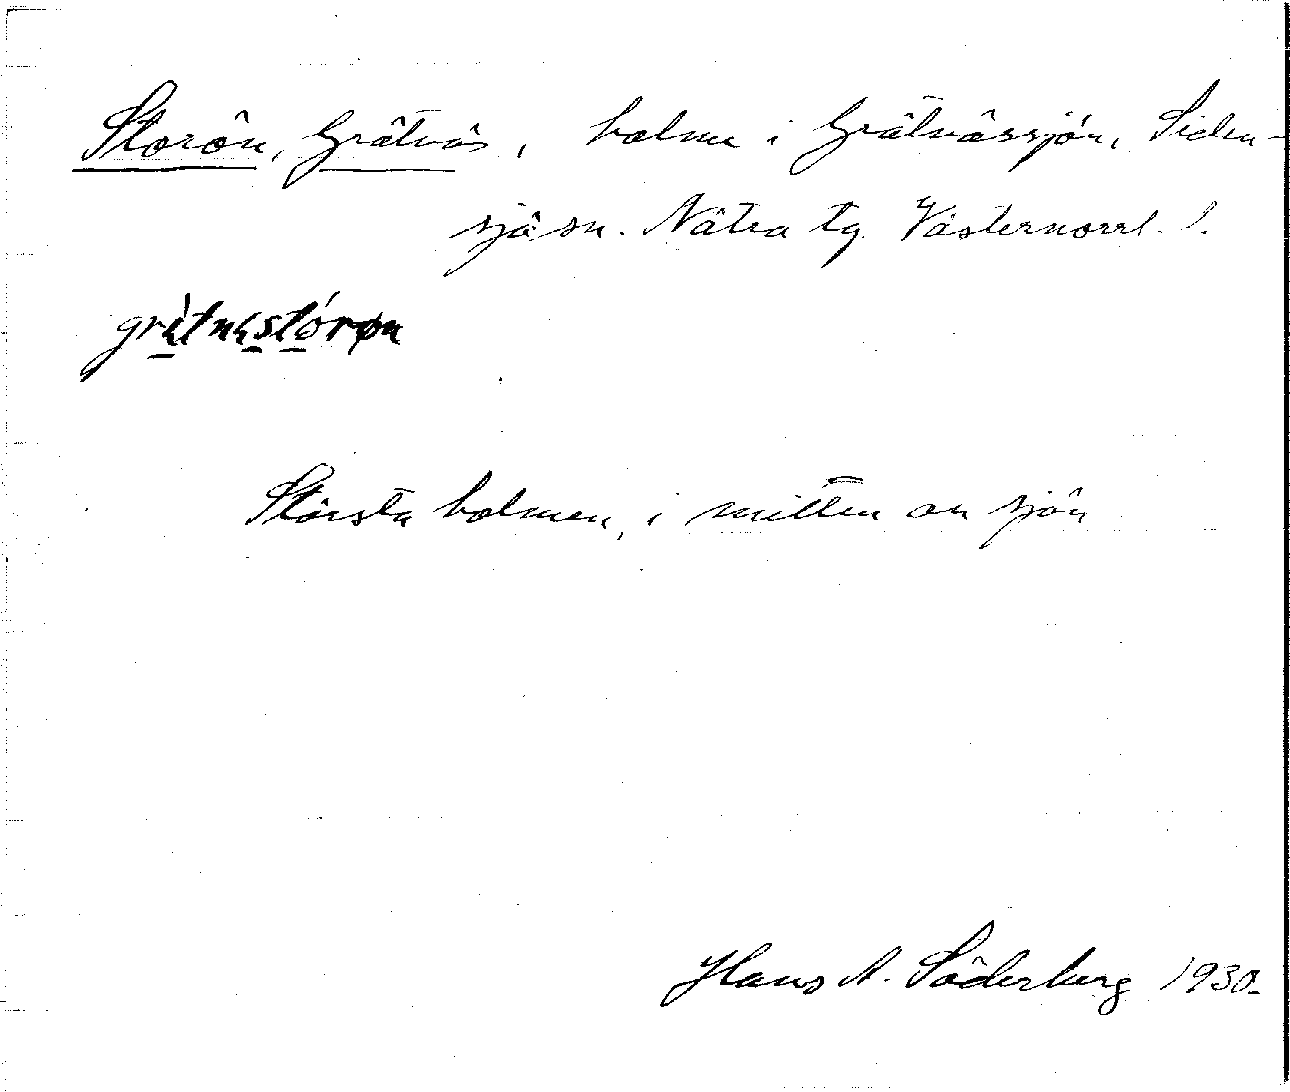 Storön, Grätnäs, holme i Grätnässjön, Siden-
sjö sn. Nätra tg. Västernorrl. l.
Största holmen, i mitten av sjön
Hans A. Söderberg 1930.